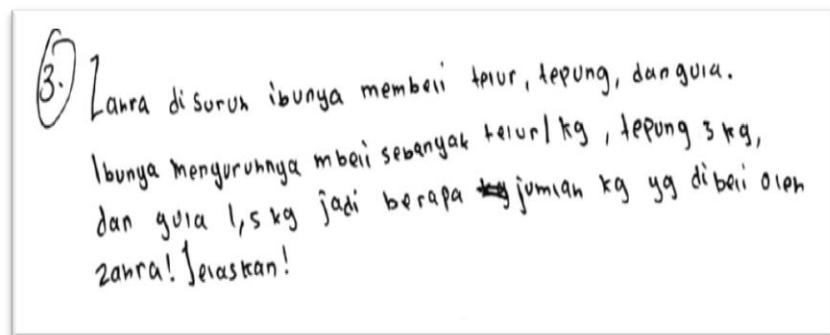 3. Zahra di suruh ibunya membeli telur, tepung, dan gula.
Ibunya menyuruhnya mbeli sebanyak telur 1 kg, tepung 3 kg,
dan gula 1,5 kg jadi berapa jumlah kg yg dibeli oleh
zahra! Jelaskan!